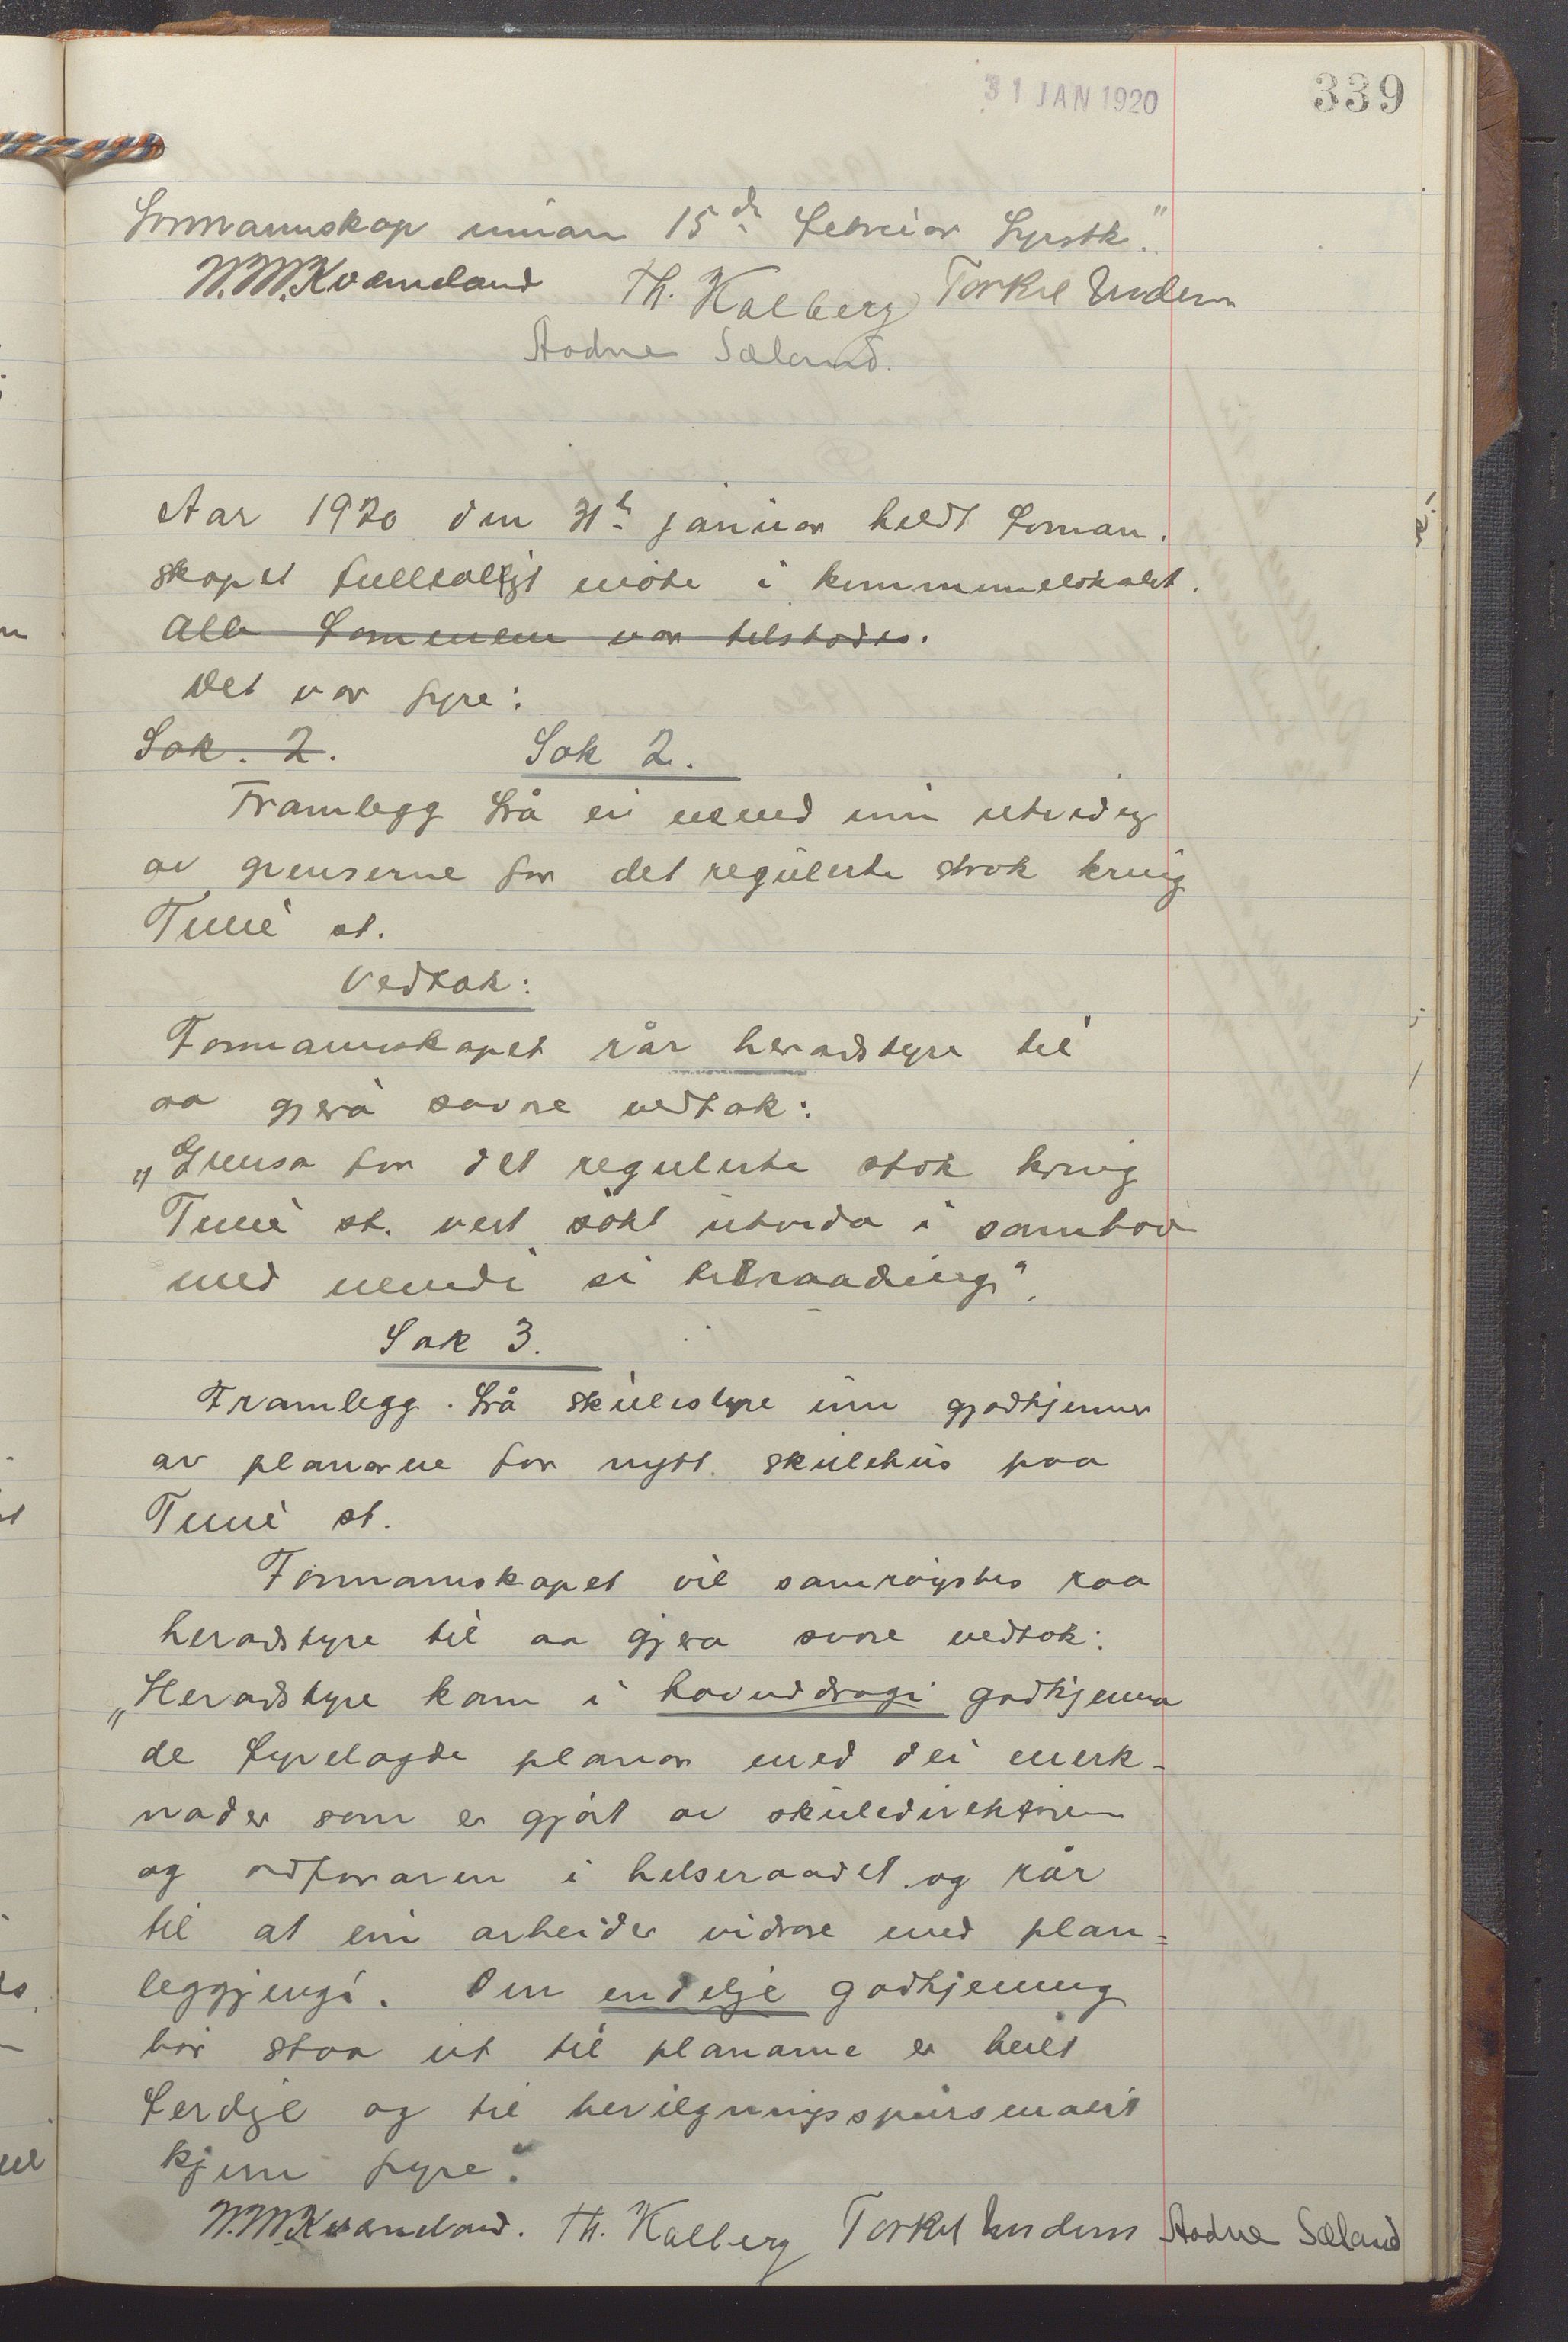 31 JAN 1920
339
formannskap innan 15de februar fyrstk."
W.W.Kvameland Th. Kalberg Torkel Undem
Aadne Sæland.
Aar 1920 den 31te januar heldt forman.
skapet fulltalligt møte i kommunelokalet.
Alle formenn var tilstades.
Det var fyre:
Sak. 2. Sak 2.
Framlegg frå ei nemnd um utviding
av grenserne for det regulerte strok kring
Time st.
Vedtak:
Formannskapet rår heradstyre til
aa gjera sovore vedtak:
„Grensa for det regulerte strok kring
Time st. vert søkt utvida i samhøve
med nemndi si tilraading".
Sak 3.
Framlegg frå skulestyre um godkjenning
av planarne for nytt skulehus paa
Time st.
Formannskapet vil samrøystes raa
heradstyre til aa gjera sovore vedtak:
„Heradstyre kann i hovuddragi godkjenna
de fyrelagde planar med dei merk-
nader som er gjort av skuledirektøren
og ordføraren i helseraadet og rår
til at ein arbeider vidare med plan=
leggjingi. Den endelje godkjenning
bør staa ut til planarne er heilt
ferdge og til bevilgningsspursmaalet
kjem fyre."
W.W.Kvameland. Th. Kalberg Torkel Undem Aadne Sæland